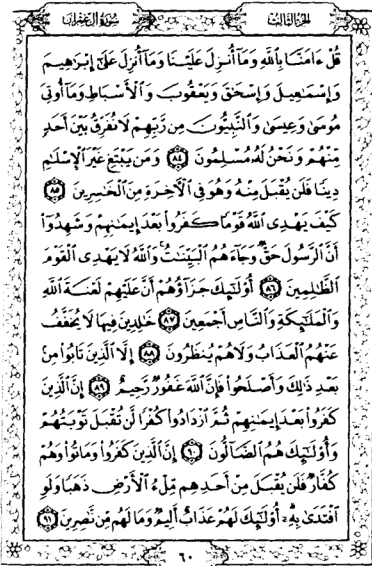 الجزء الثالث
سورة آل عمران
قُلْ ءَامَنَّا بِٱللَّهِ وَمَآ أُنزِلَ عَلَيْنَا وَمَآ أُنزِلَ عَلَىٰٓ إِبْرَٰهِيمَ
وَإِسْمَٰعِيلَ وَإِسْحَٰقَ وَيَعْقُوبَ وَٱلْأَسْبَاطِ وَمَآ أُوتِىَ
مُوسَىٰ وَعِيسَىٰ وَٱلنَّبِيُّونَ مِن رَّبِّهِمْ لَا نُفَرِّقُ بَيْنَ أَحَدٍ
مِّنْهُمْ وَنَحْنُ لَهُۥ مُسْلِمُونَ ٨٤ وَمَن يَبْتَغِ غَيْرَ ٱلْإِسْلَٰمِ
دِينًا فَلَن يُقْبَلَ مِنْهُ وَهُوَ فِى ٱلْءَاخِرَةِ مِنَ ٱلْخَٰسِرِينَ ٨٥
كَيْفَ يَهْدِى ٱللَّهُ قَوْمًا كَفَرُوا۟ بَعْدَ إِيمَٰنِهِمْ وَشَهِدُوٓا۟
أَنَّ ٱلرَّسُولَ حَقٌّ وَجَآءَهُمُ ٱلْبَيِّنَٰتُ ۚ وَٱللَّهُ لَا يَهْدِى ٱلْقَوْمَ
ٱلظَّٰلِمِينَ ٨٦ أُو۟لَٰٓئِكَ جَزَآؤُهُمْ أَنَّ عَلَيْهِمْ لَعْنَةَ ٱللَّهِ
وَٱلْمَلَٰٓئِكَةِ وَٱلنَّاسِ أَجْمَعِينَ ٨٧ خَٰلِدِينَ فِيهَا لَا يُخَفَّفُ
عَنْهُمُ ٱلْعَذَابُ وَلَا هُمْ يُنظَرُونَ ٨٨ إِلَّا ٱلَّذِينَ تَابُوا۟ مِنۢ
بَعْدِ ذَٰلِكَ وَأَصْلَحُوا۟ فَإِنَّ ٱللَّهَ غَفُورٌ رَّحِيمٌ ٨٩ إِنَّ ٱلَّذِينَ
كَفَرُوا۟ بَعْدَ إِيمَٰنِهِمْ ثُمَّ ٱزْدَادُوا۟ كُفْرًا لَّن تُقْبَلَ تَوْبَتُهُمْ
وَأُو۟لَٰٓئِكَ هُمُ ٱلضَّآلُّونَ ٩٠ إِنَّ ٱلَّذِينَ كَفَرُوا۟ وَمَاتُوا۟ وَهُمْ
كُفَّارٌ فَلَن يُقْبَلَ مِنْ أَحَدِهِم مِّلْءُ ٱلْأَرْضِ ذَهَبًا وَلَوِ
ٱفْتَدَىٰ بِهِۦٓ ۗ أُو۟لَٰٓئِكَ لَهُمْ عَذَابٌ أَلِيمٌ وَمَا لَهُم مِّن نَّٰصِرِينَ ٩١
٦٠